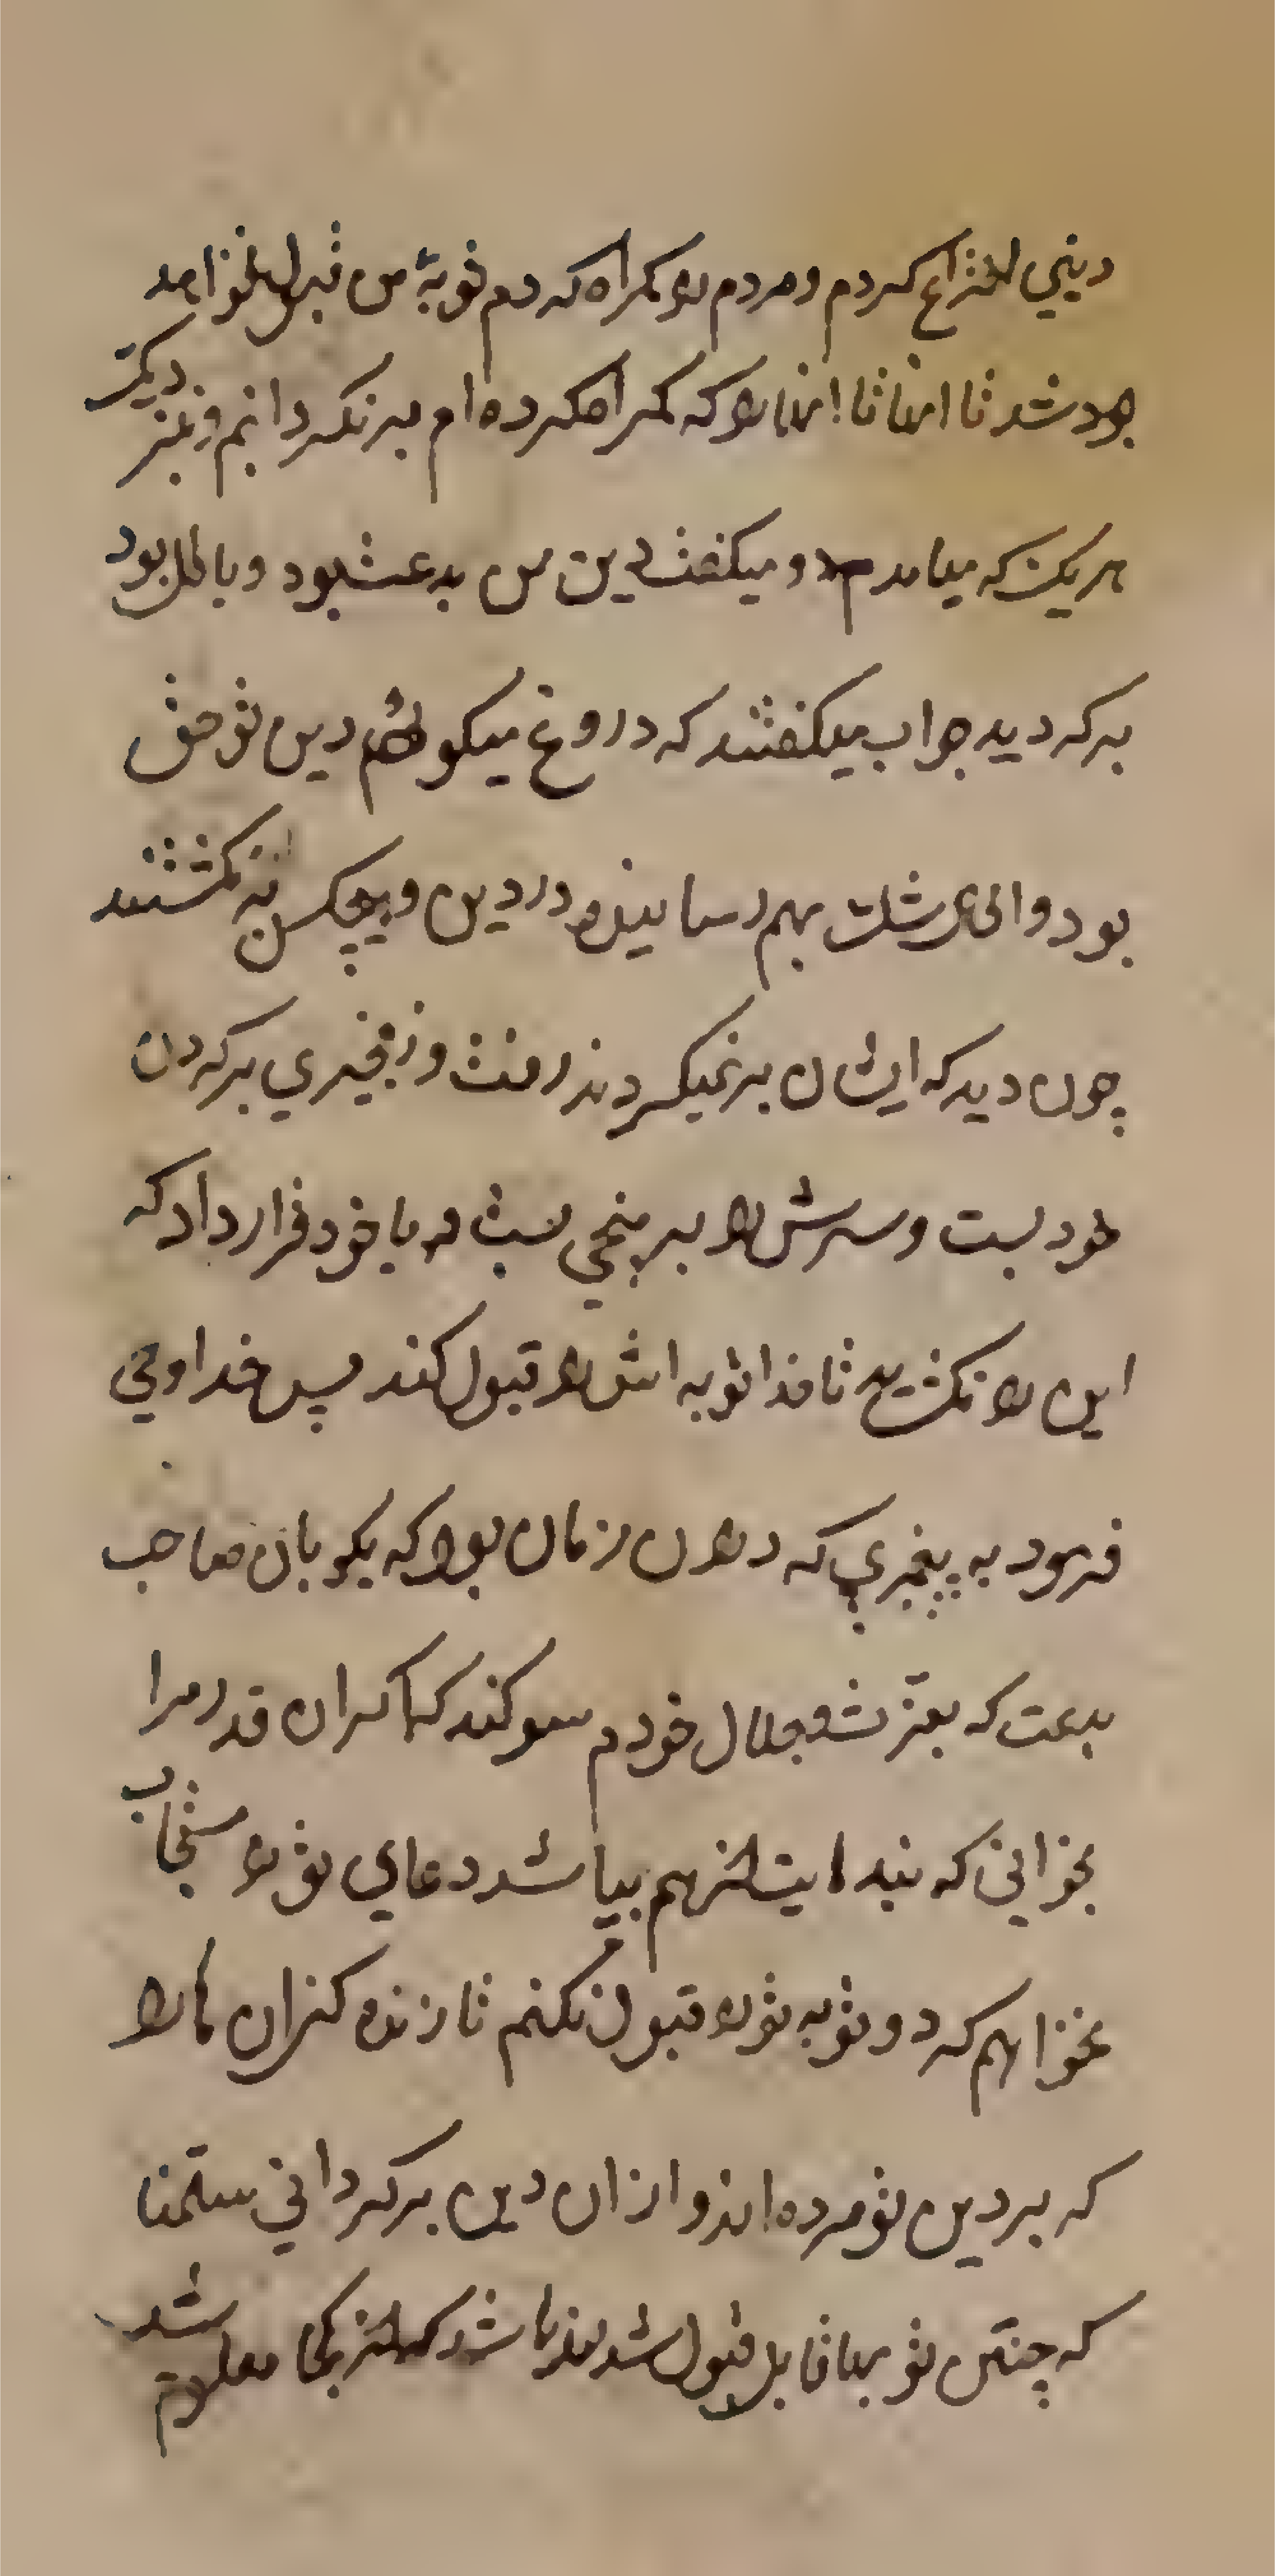 دیني اختراع کردم و مردم را کمراه کردم توبهٔ من قبول نخواهد
بود شد تا انها تا انها را که کمراه کرده ام برنکردانم و نیز دیکر
هر یک که میامدم و میکفت دین من بدعت بود و باطل بود
برکردید جواب میکفتند که دروغ میکوئي دین تو حق
بود والحال شک بهم رسانیده در دین و هیچکس برنکشتند
چون دید که ایشان برنمیکردند رفت و زنجیري برکردن
خود بست و سرش را بر میخي بست و با خود قرار داد که
این را نکشاید تا خدا توبه اش را قبول کند پس خدا وحي
فرمود به پیغمبري که در ان زمان بود که بکو بان صاحب
بدعت که بعزت و جلال خودم سوکند که اکر ان قدر مرا
بخواني که بندهایت از هم بپاشد دعاي تو را مستجاب
نخواهم کرد و توبه تو را قبول نکنم تا زنده کني ان ها را
که بر دین تو مرده اند و از ان دین برکرداني
که چنین توبها قابل قبول شدند باشد که از کجا معلوم شد